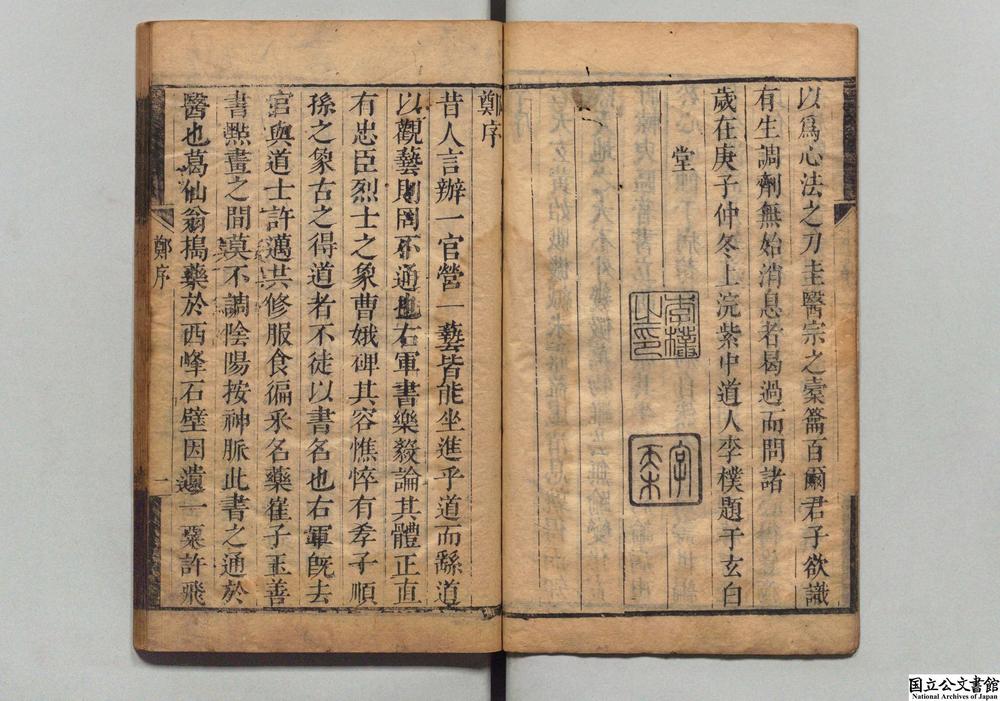 以爲心法之刀圭醫宗之槖籥百爾君子欲識
有生調劑無始消息者曷過而問諸
歲在庚子仲冬上浣紫中道人李樸題于玄白
堂
李樸之印
鄭序
昔人言辦一官營一藝皆能坐進乎道而繇道
以觀藝則罔不通也右軍書樂毅論其體正直
有忠臣烈士之象曹娥碑其容憔悴有孝子順
孫之象古之得道者不徒以書名也右軍旣去
官與道士許邁共修服食徧采名藥崔子玉善
書㸃畫之間莫不調陰陽按神脈此書之通於
醫也葛仙翁搗藥於西峰石壁因遺一粟許飛
鄭序
一
国立公文書館
National Archives of Japan